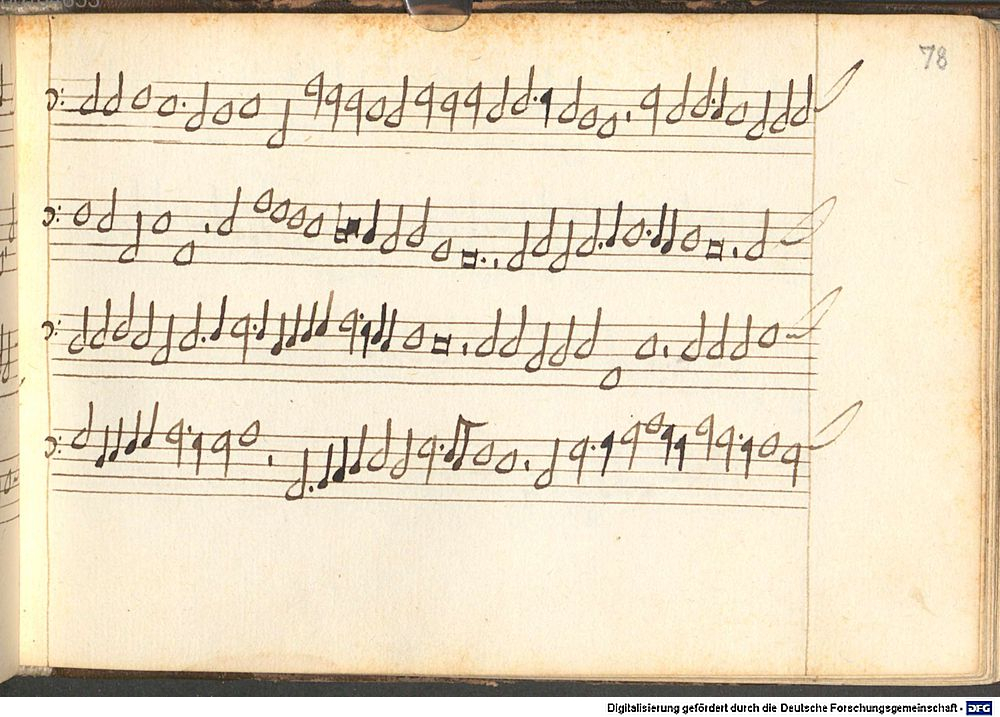 78
Digitalisierung gefördert durch die Deutsche Forschungsgemeinschaft - DFG